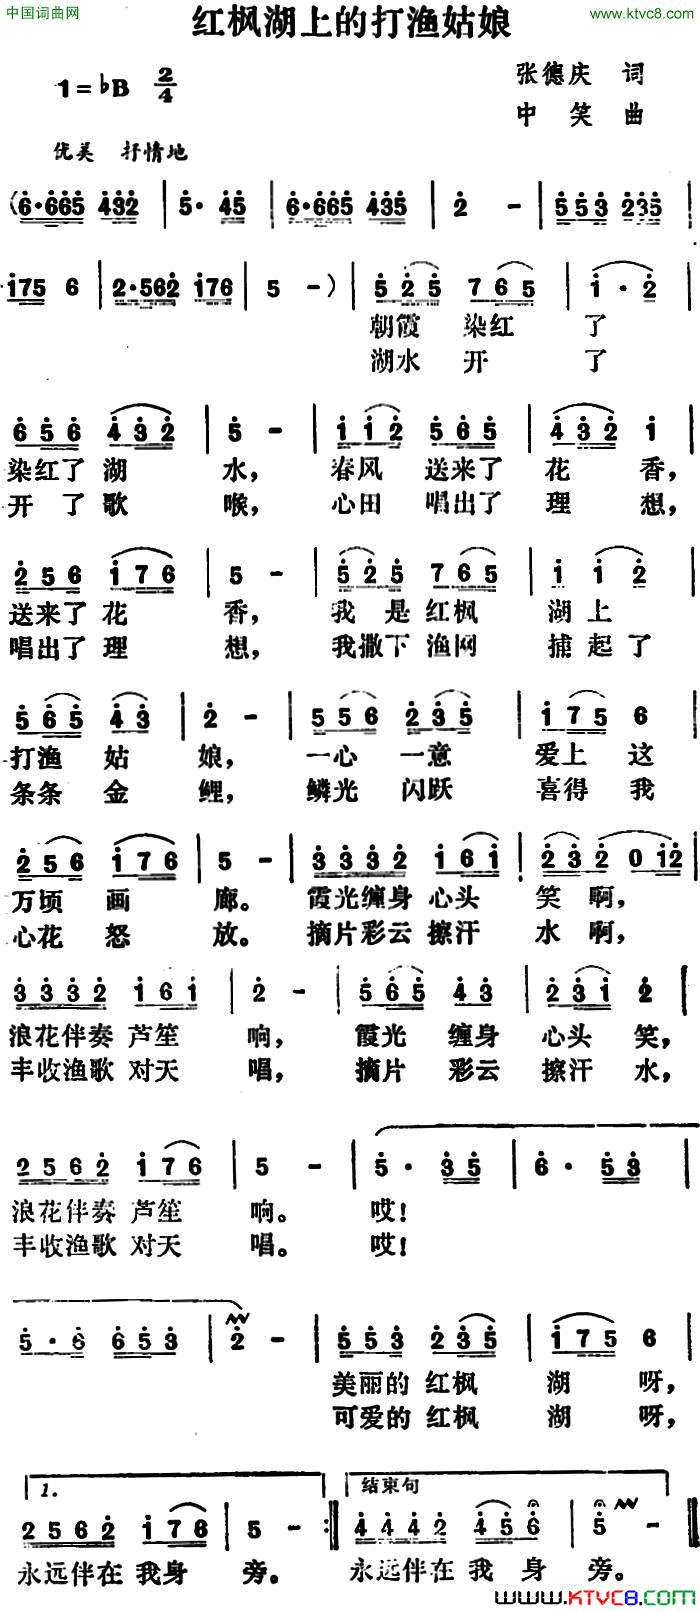 中国词曲网
www.ktvc8.com
红枫湖上的打渔姑娘
1=♭B 2/4
张德庆 词
中笑 曲
优美 抒情地
(6·6665 432 | 5· 45 | 6·6665 435 | 2 - | 553 235 |
175 6 | 2·562 176 | 5 -) | 525 765 | 1·2 |
朝霞 染红 了
湖水 开 了
656 432 | 5 - | 112 565 | 432 1 |
染红了 湖 水, 春风 送来了 花 香,
开 了 歌 喉, 心田 唱出了 理 想,
256 176 | 5 - | 525 765 | 1 12 |
送来了 花 香, 我 是 红枫 湖上
唱出了 理 想, 我撒下 渔网 捕起了
565 43 | 2 - | 556 235 | 175 6 |
打渔 姑 娘, 一心 一意 爱上 这
条条 金 鲤, 鳞光 闪跃 喜得 我
256 176 | 5 - | 3332 161 | 232 012 |
万顷 画 廊。 霞光缠身 心头 笑 啊,
心花 怒 放。 摘片彩云 擦汗 水 啊,
3332 161 | 2 - | 565 43 | 231 2 |
浪花伴奏 芦笙 响, 霞光 缠身 心头 笑,
丰收渔歌 对天 唱, 摘片 彩云 擦汗 水,
2562 176 | 5 - | 5· 35 | 6· 53 |
浪花伴奏 芦笙 响。 哎!
丰收渔歌 对天 唱。 哎!
5·6 653 | 2 - | 553 235 | 175 6 |
美丽的 红枫 湖 呀,
可爱的 红枫 湖 呀,
1. 结束句
2562 176 | 5 - :‖ 4442 456 | 5 - ‖
永远伴在 我身 旁。 永远伴在 我 身 旁。
www.KTVC8.com